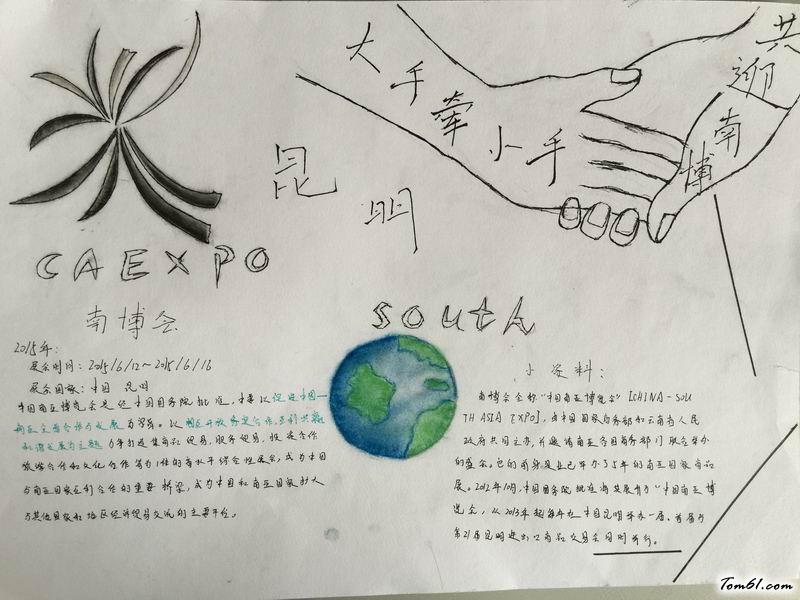 大手牵小手
共迎南博
昆明
CAEXPO
南博会
SOUTH
2015年:
展会时间:2015/6/12~2015/6/16
展会国家:中国 昆明
中国南亚博览会是经中国国务院批准,
促进中国—
南亚全面合作与发展为宗旨。以
和谐发展为主题
商品贸易,服务贸易,投资合作
旅游合作和文化合作等为一体的高水平综合性展会,成为中国
与南亚国家互利合作的重要桥梁,成为中国和南亚国家扩大
与其他国家和地区经济贸易交流的主要平台。
小资料:
南博会全称“中国南亚博览会”[CHINA-SOU
TH ASIA EXPO],由中国国家商务部和云南省人民
政府共同主办,并邀请南亚各国商务部门联合举办
的盛会。它的前身是已举办了5年的南亚国家商品
展。2012年10月,中国国务院批准将其展会升为“中国南亚博
览会,从2013年起每年在中国昆明举办一届。首届与
第21届昆明进出口商品交易会同时举行。
Tom61.com